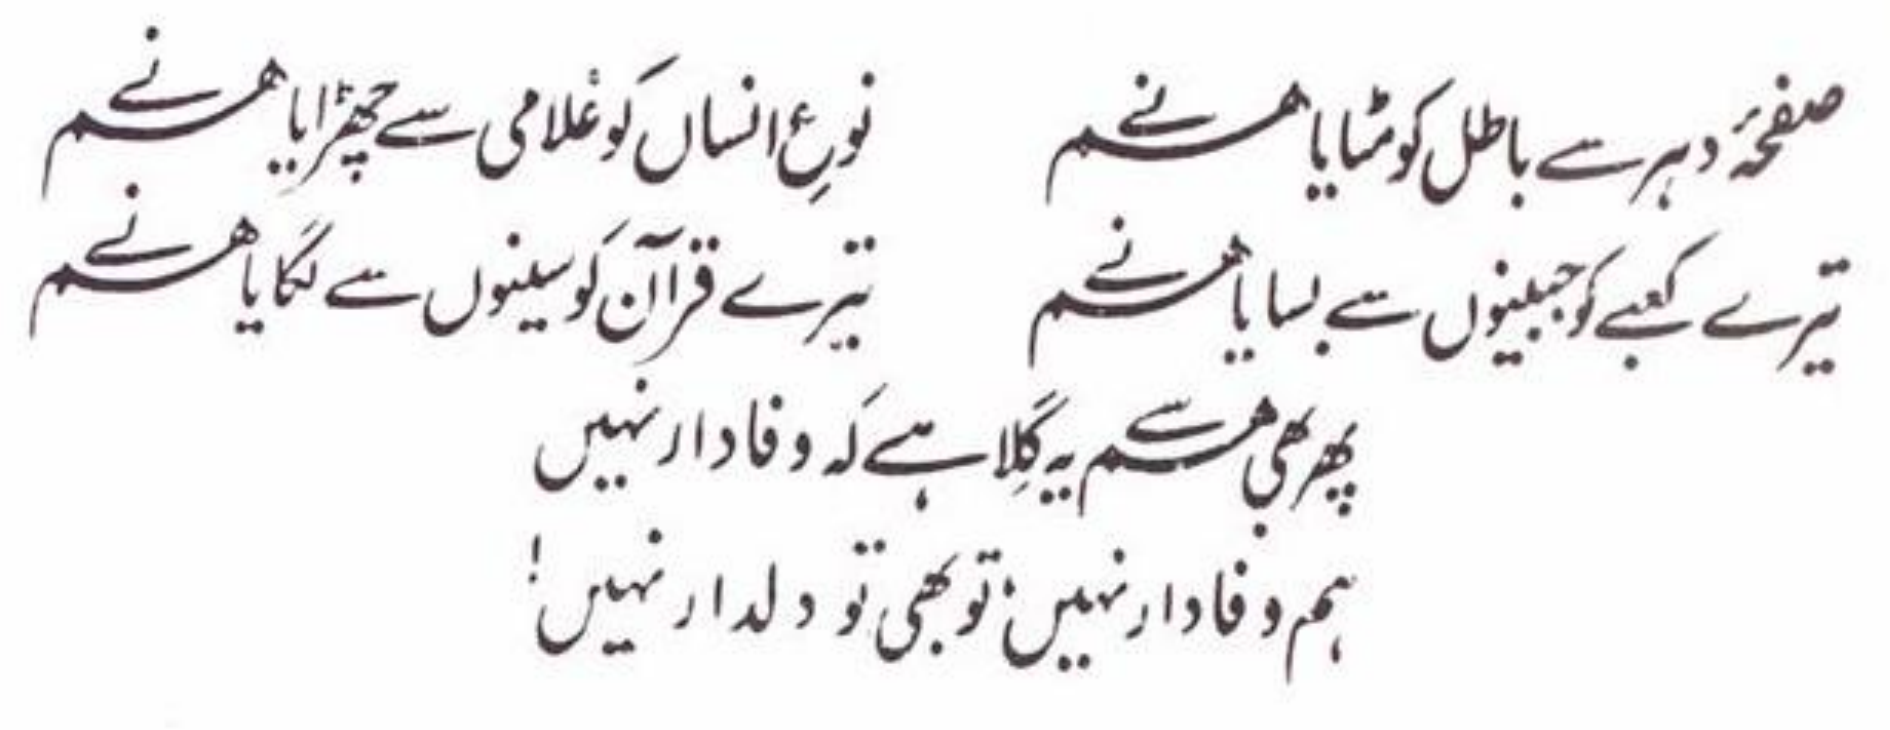 صفحۂ دہر سے باطل کو مٹایا ہم نے
نوعِ انساں کو غلامی سے چھڑایا ہم نے
تیرے کعبے کو جبینوں سے بسایا ہم نے
تیرے قرآن کو سینوں سے لگایا ہم نے
پھر بھی ہم سے یہ گِلا ہے کہ وفادار نہیں
ہم وفادار نہیں، تو بھی تو دلدار نہیں!